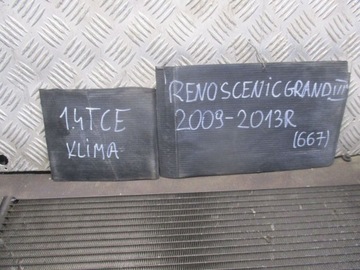 1.4TCE
KLIMA
RENOSCENICGRANDIII
2009-2013R
(667)